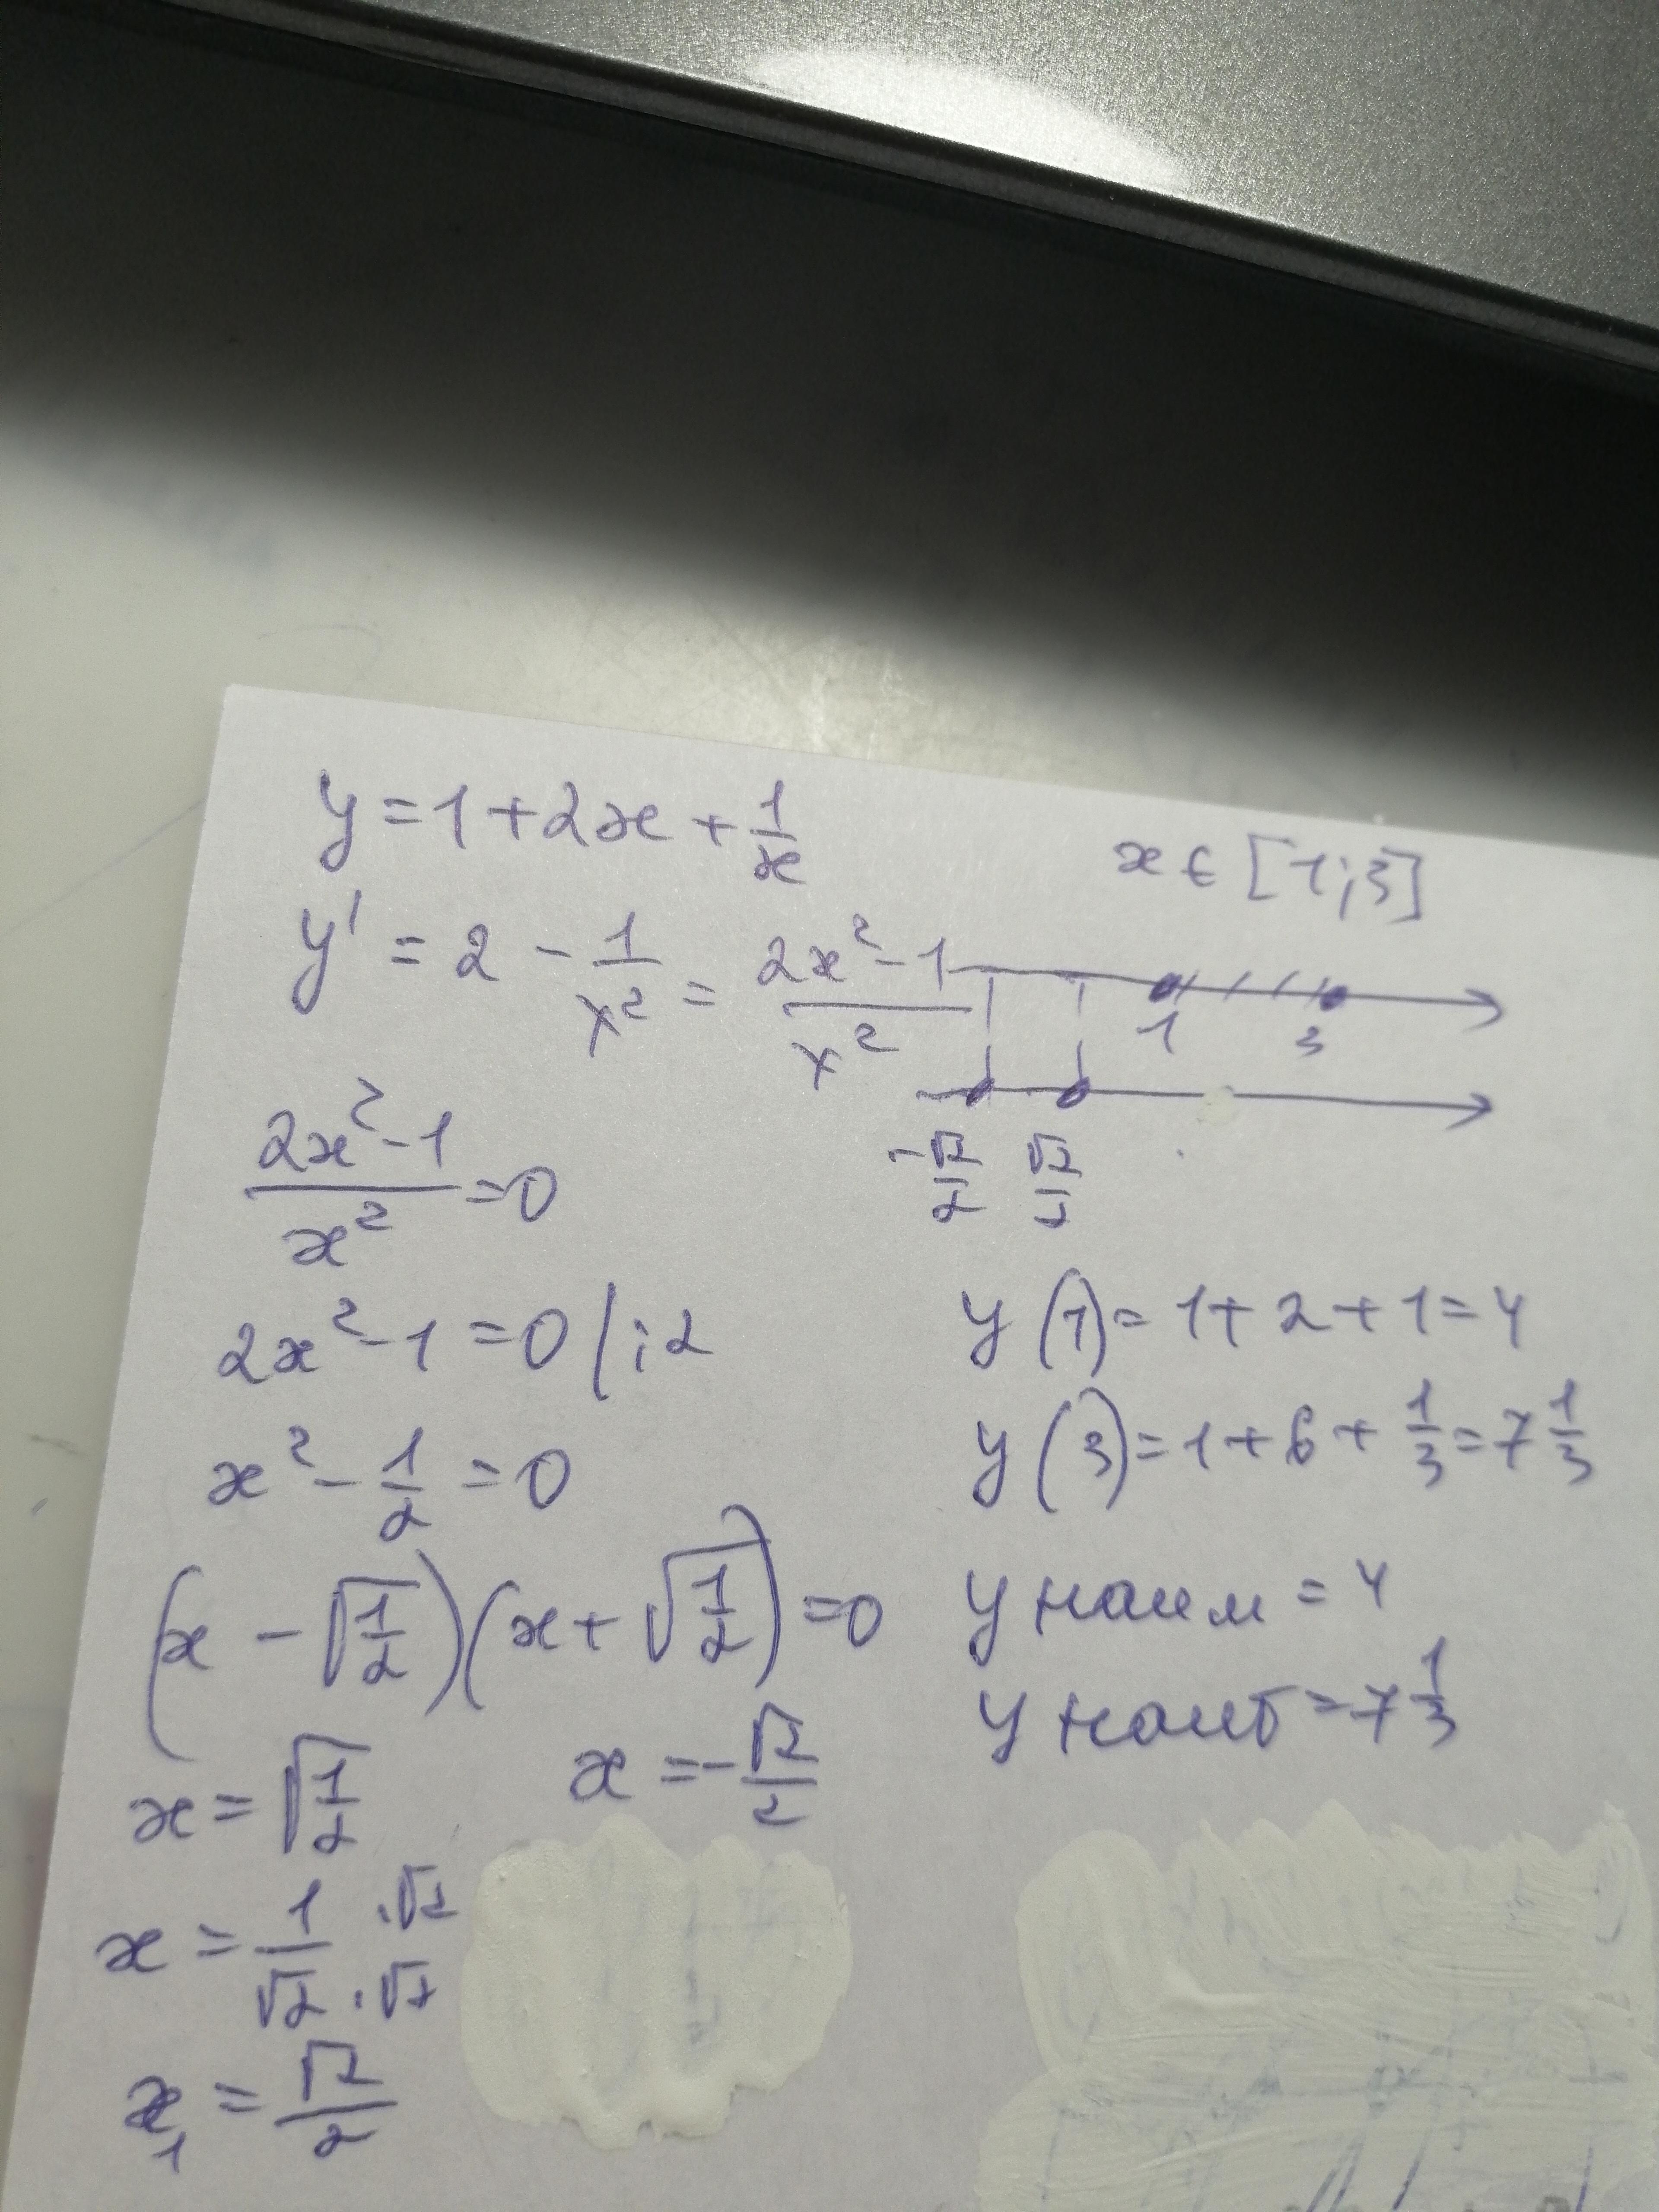 y = 1 + 2x + 1/x
x ∈ [1; 3]
y' = 2 - 1/x² = (2x² - 1)/x²
1 3
-√2/2 √2/2
(2x² - 1)/x² = 0
2x² - 1 = 0 | : 2
x² - 1/2 = 0
(x - √(1/2))(x + √(1/2)) = 0
x = √(1/2) x = -√2/2
x = 1/√2 · √2 / · √2
x₁ = √2/2
y(1) = 1 + 2 + 1 = 4
y(3) = 1 + 6 + 1/3 = 7 1/3
y наим = 4
y наиб = 7 1/3